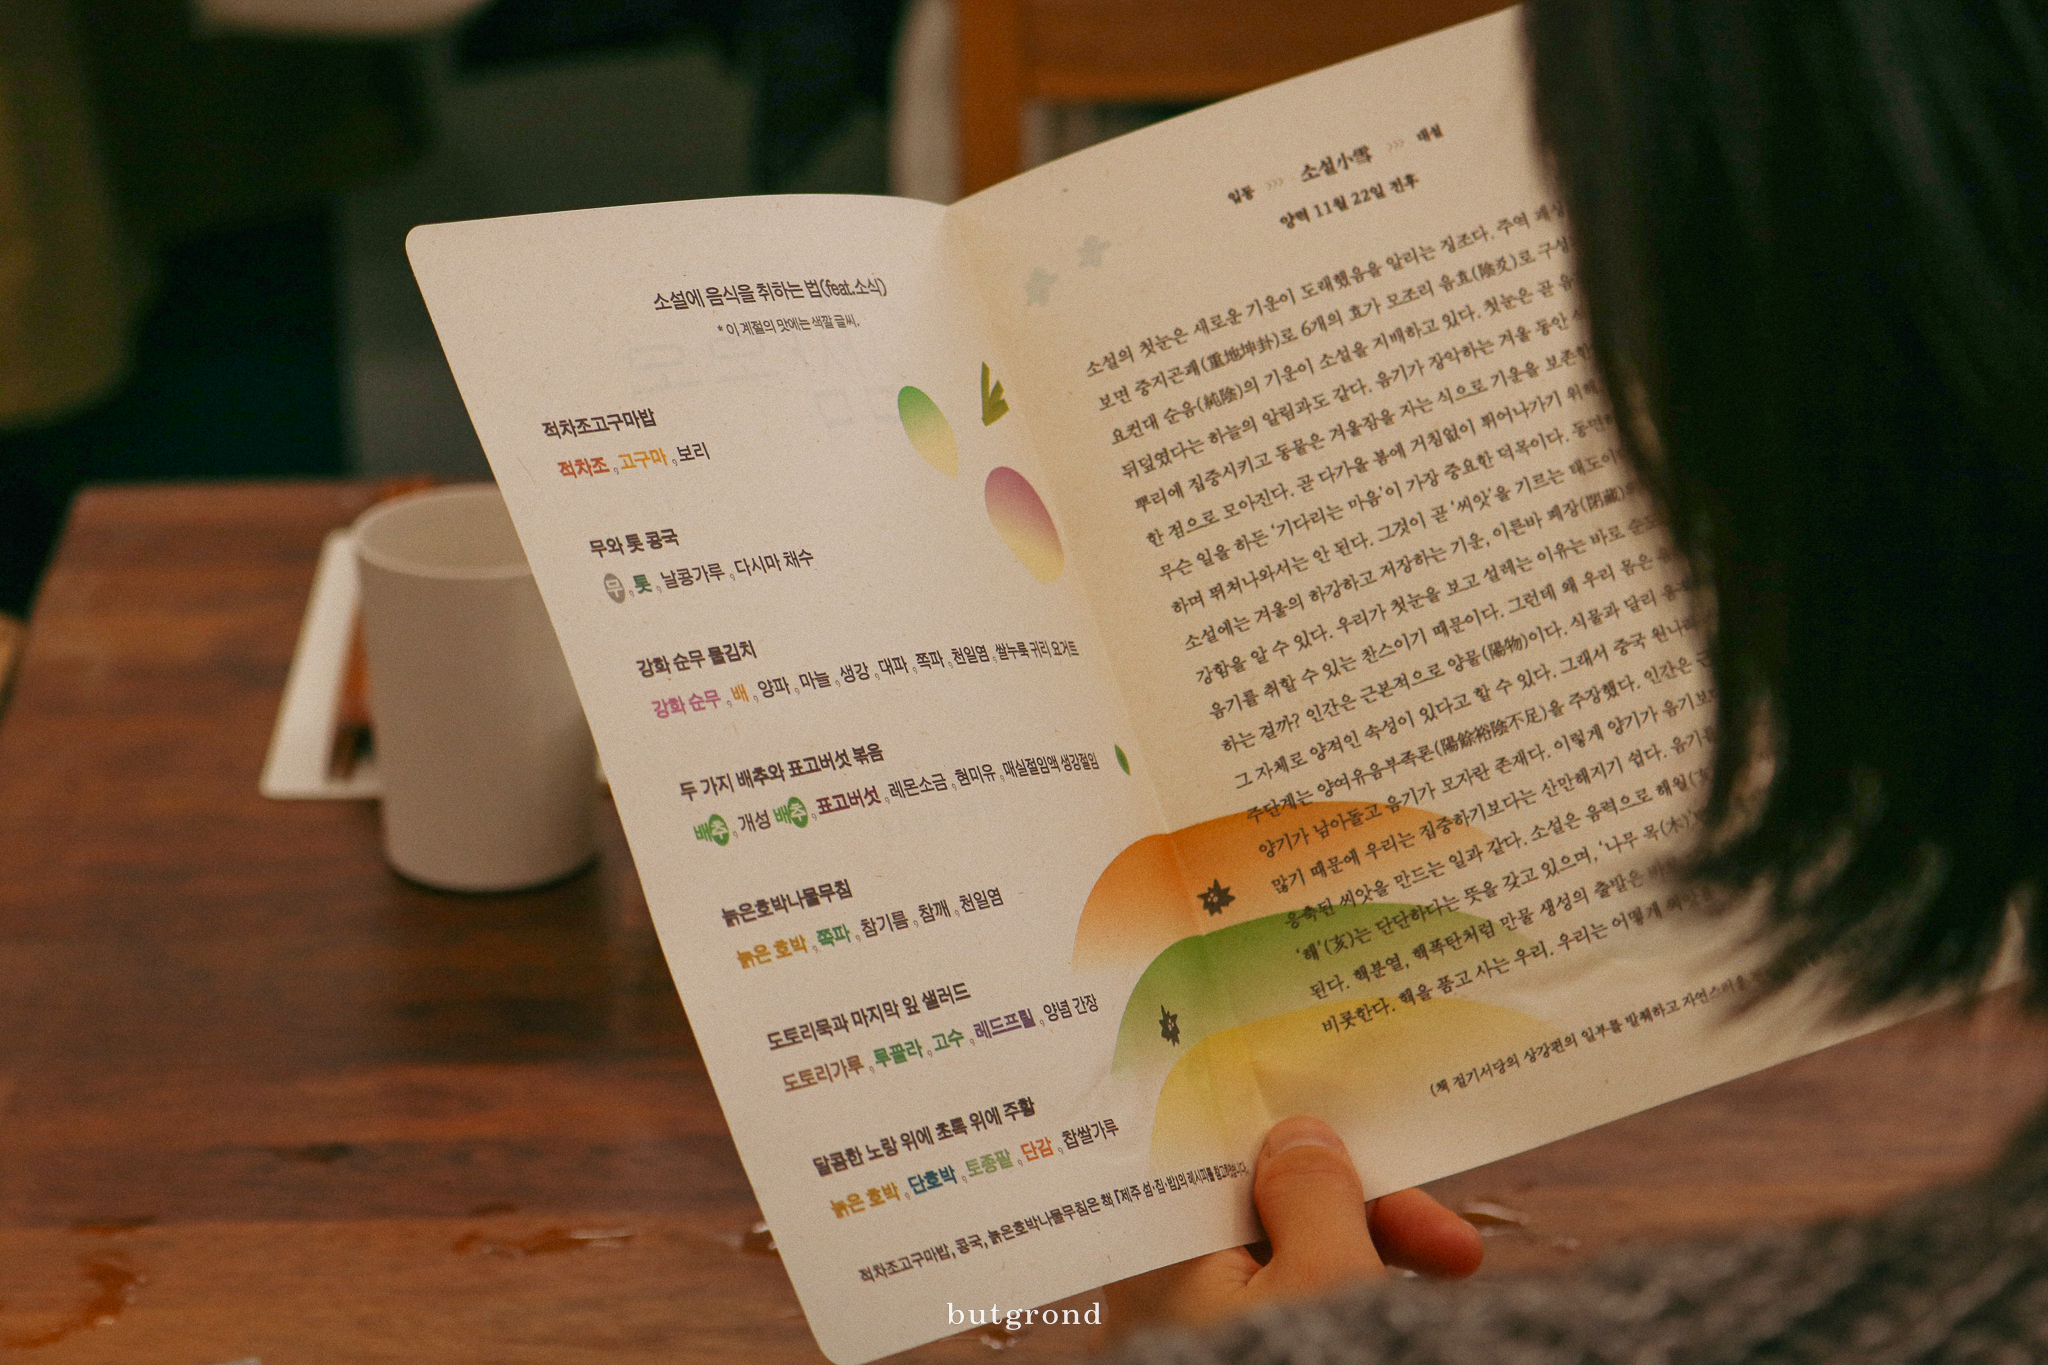 소설에 음식을 취하는 법(feat.소식)
* 이 계절의 맛에는 색깔 글씨.
적차조고구마밥
적차조, 고구마, 보리
무와 톳 콩국
무, 톳, 날콩가루, 다시마 채수
강화 순무 물김치
강화 순무, 배, 양파, 마늘, 생강, 대파, 쪽파, 천일염, 쌀누룩 귀리 요거트
두 가지 배추와 표고버섯 볶음
배추, 개성 배추, 표고버섯, 레몬소금, 현미유, 매실절임액 생강절임
늙은호박나물무침
늙은 호박, 쪽파, 참기름, 참깨, 천일염
도토리묵과 마지막 잎 샐러드
도토리가루, 루꼴라, 고수, 레드프릴, 양념 간장
달콤한 노랑 위에 초록 위에 주황
늙은 호박, 단호박, 토종팥, 단감, 찹쌀가루
적차조고구마밥, 콩국, 늙은호박나물무침은 책 『제주 섬·집·밥』의 레시피를 참고하였습니다.
입동 >>> 소설小雪 >>> 대설
양력 11월 22일 전후
소설의 첫눈은 새로운 기운이 도래했음을 알리는 징조다. 주역 괘상
보면 중지곤괘(重地坤卦)로 6개의 효가 모조리 음효(陰爻)로 구성
요컨대 순음(純陰)의 기운이 소설을 지배하고 있다. 첫눈은 곧 음
뒤덮였다는 하늘의 알림과도 같다. 음기가 장악하는 겨울 동안
뿌리에 집중시키고 동물은 겨울잠을 자는 식으로 기운을 보존한
한 점으로 모아진다. 곧 다가올 봄에 거침없이 튀어나가기 위해
무슨 일을 하든 '기다리는 마음'이 가장 중요한 덕목이다. 동면
하며 뛰쳐나와서는 안 된다. 그것이 곧 '씨앗'을 기르는 태도이
소설에는 겨울의 하강하고 저장하는 기운, 이른바 폐장(閉藏)의
강함을 알 수 있다. 우리가 첫눈을 보고 설레는 이유는 바로 순
음기를 취할 수 있는 찬스이기 때문이다. 그런데 왜 우리 몸은 음
하는 걸까? 인간은 근본적으로 양물(陽物)이다. 식물과 달리 움
그 자체로 양적인 속성이 있다고 할 수 있다. 그래서 중국 원나라
주단계는 양여유음부족론(陽餘裕陰不足)을 주장했다. 인간은
양기가 남아돌고 음기가 모자란 존재다. 이렇게 양기가 음기보
많기 때문에 우리는 집중하기보다는 산만해지기 쉽다. 음기를
응축된 씨앗을 만드는 일과 같다. 소설은 음력으로 해월(亥
'해'(亥)는 단단하다는 뜻을 갖고 있으며, '나무 목(木)'
된다. 핵분열, 핵폭탄처럼 만물 생성의 출발은
비롯한다. 핵을 품고 사는 우리. 우리는 어떻게 씨앗을
(책 절기서당의 상강편의 일부를 발췌하고 자연스러움을
butgrond